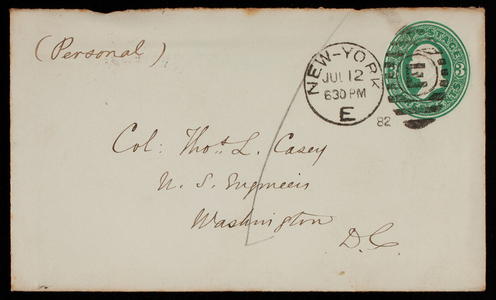 (Personal)
NEW-YORK
JUL 12
630 PM
E
82
POSTAGE
3
Col: Thos. L. Casey
U. S. Engineers
Washington
D.C.